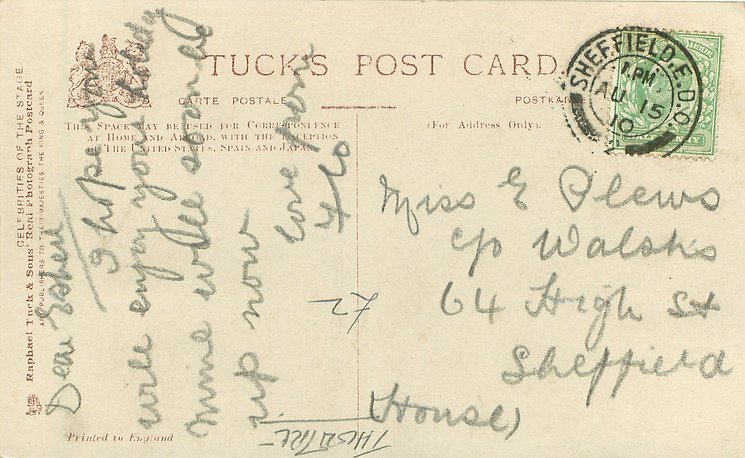 TUCK'S POST CARD.
CARTE POSTALE
POSTKARTE
THIS SPACE MAY BE USED FOR CORRESPONDENCE
AT HOME AND ABROAD, WITH THE EXCEPTION
OF THE UNITED STATES, SPAIN AND JAPAN.
(For Address Only).
SHEFFIELD. E.D.O
1. PM
AU 15
10
CELEBRITIES OF THE STAGE.
Raphael Tuck & Sons' "Real Photograph" Postcard
ART PUBLISHERS TO THEIR MAJESTIES THE KING & QUEEN
Dear
I hope you
will enjoy your holiday
mine will soon be
up now
love from
Flo
Miss E Plews
c/o Walshs
64 High St
Sheffield
(House)
27
THEATRE
Printed in England